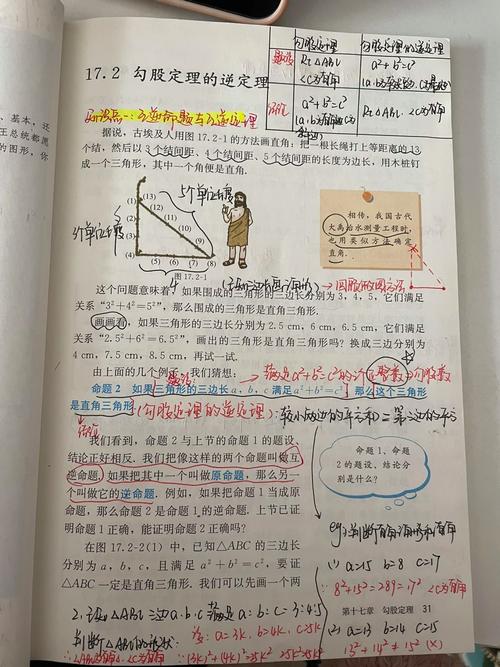 勾股定理
勾股定理的逆定理
题设
Rt△ABC
∠C为直角
a²+b²=c²
结论
a²+b²=c²
Rt△ABC ∠C为直角
17.2 勾股定理的逆定理
知识点一:互逆命题与互逆定理
基本,还
王总统都愿
的图形,你
据说,古埃及人用图 17.2-1 的方法画直角:把一根长绳打上等距离的 13
个结,然后以 3 个结间距、4 个结间距、5 个结间距的长度为边长,用木桩钉
成一个三角形,其中一个角便是直角.
5个单位长度
(13)
(1)
(12)
(2)
(11)
(3)
(10)
(4)
(9)
(5)
(6)
(7)
(8)
4
图 17.2-1
相传,我国古代
大禹治水测量工程时,
也用类似方法确定
直角.
这个问题意味着,如果围成的三角形的三边长分别为 3,4,5,它们满足
关系“3²+4²=5²”,那么围成的三角形是直角三角形.
画画看,如果三角形的三边长分别为 2.5 cm,6 cm,6.5 cm,它们满足
关系“2.5²+6²=6.5²”,画出的三角形是直角三角形吗?换成三边分别为
4 cm,7.5 cm,8.5 cm,再试一试.
由上面的几个例子,我们猜想:
满足a²+b²=c²的
正整数
勾股数
题设
命题 2 如果三角形的三边长 a,b,c 满足 a²+b²=c²,那么这个三角形
是直角三角形.
(勾股定理的逆定理):较小两边的平方和=第三边的平方
结论
我们看到,命题 2 与上节的命题 1 的题设、
结论正好相反.我们把像这样的两个命题叫做互
逆命题.如果把其中一个叫做原命题,那么另一
个叫做它的逆命题.例如,如果把命题 1 当成原
命题,那么命题 2 是命题 1 的逆命题.上节已证
明命题 1 正确,能证明命题 2 正确吗?
命题 1、命
题 2 的题设、结论分
别是什么?
在图 17.2-2(1) 中,已知△ABC 的三边长
分别为 a,b,c,且满足 a²+b²=c²,要证
△ABC 一定是直角三角形.我们可以先画一个两
(1) a=15 b=8 c=17
8²+15²=289=17² ∠C为直角
第十七章 勾股定理 31
2.
△ABC 三边a.b.c 满足 a:b:c=3:4:5
判断△ABC的形状:
a=3k, b=4k, c=5k
(3k)²+(4k)²=25k²
(2) a=13 b=14 c=15
13²+14²≠15² (×)